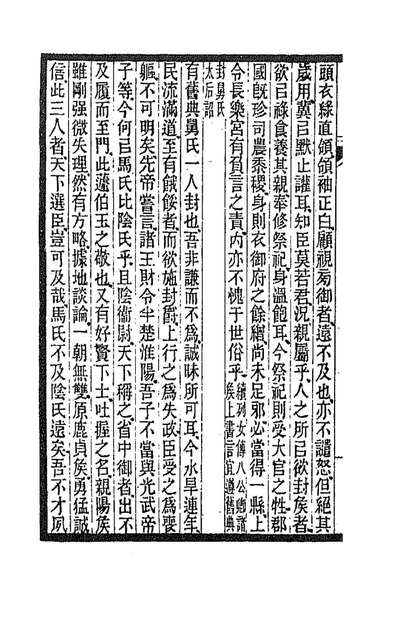 頭衣綠直領領袖正白顧視旁御者遠不及也亦不譴怒但絕其
歲用冀巳默止讙耳知臣莫若君況親屬乎人之所巳欲封矦者
欲巳祿食養其親奉修祭祀身溫飽耳今祭祀則受大官之牲郡
國旣珍司農黍稷身則衣御府之餘繒尚未足邪必當得一縣上
令長樂宮有負言之責內亦不愧于世俗乎
續列女傳八公卿諸
矦上書言宜遵舊典
封舅氏
太后詔
有舊典舅氏一人封也吾非謙而不爲誠昧所可耳今水旱連年
民流滿道至有餓餒者而欲施封爵上行之爲失政臣受之爲喪
軀不可明矣先帝嘗言諸王財令半楚淮陽吾子不當與光武帝
子等今何巳馬氏比陰氏乎且陰衞尉天下稱之省中御者出不
及履而至門此蘧伯玉之敬也又有好賢下士吐握之名親陽矦
雖剛强微失理然有方略據地談論一朝無雙原鹿貞矦勇猛誠
信此三人者天下選臣豈可及哉馬氏不及陰氏遠矣吾不才夙